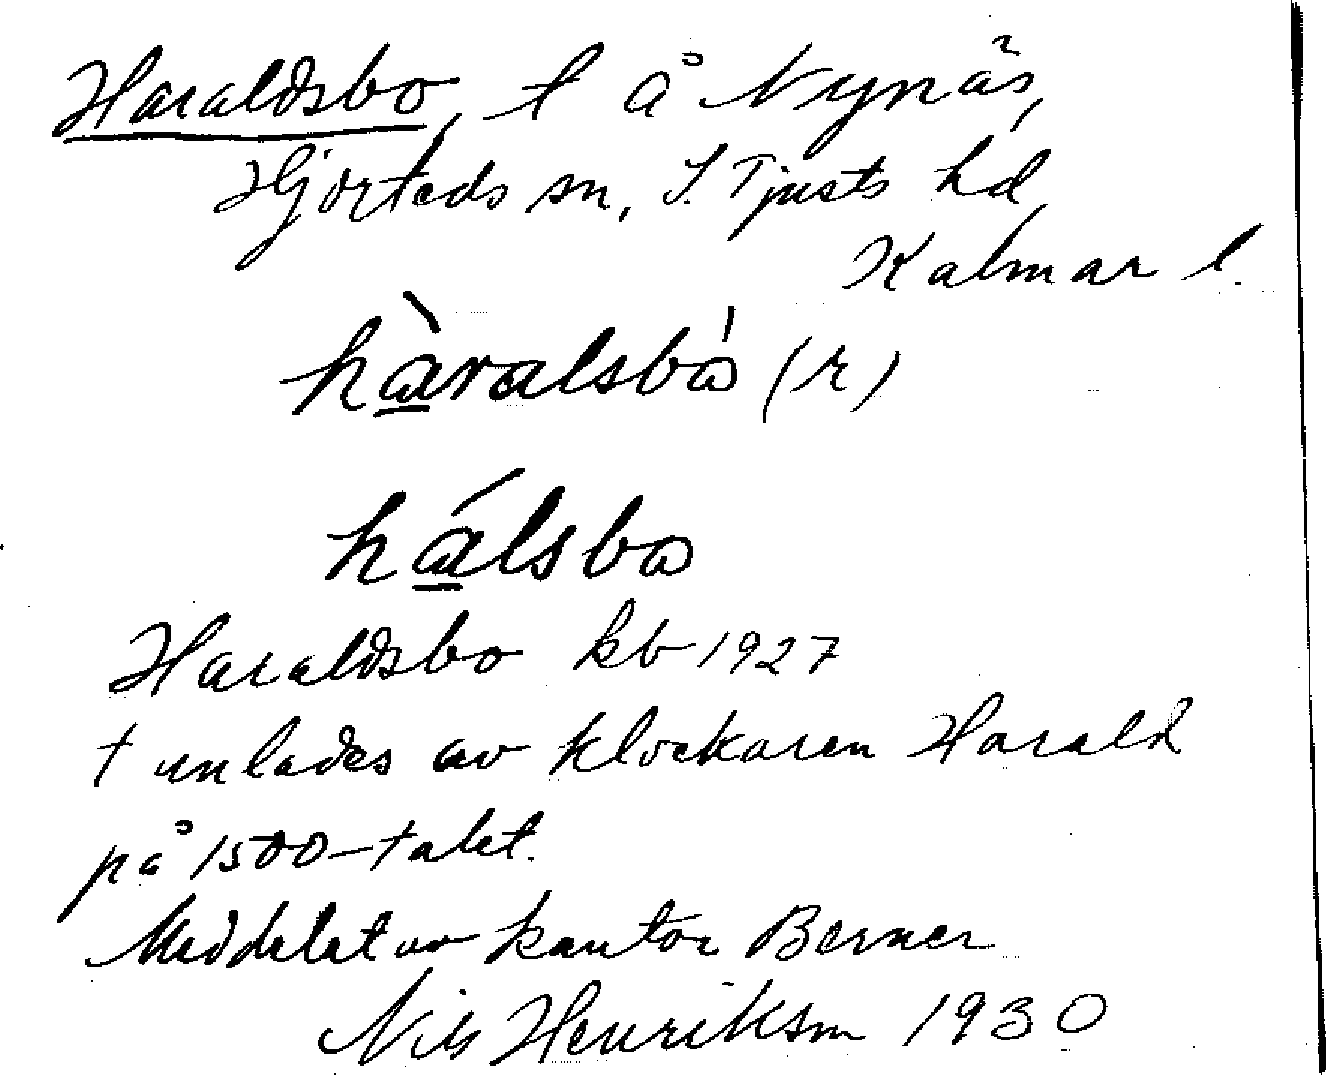 Haraldsbo, t å Nynäs,
Hjorteds sn, S. Tjusts hd
Kalmar l.
hàralsbó (r)
hálsbo
Haraldsbo kb 1927
av klockaren Harald
på 1500-talet.
Meddelat av kantor Berner
Nils Henriksson 1930